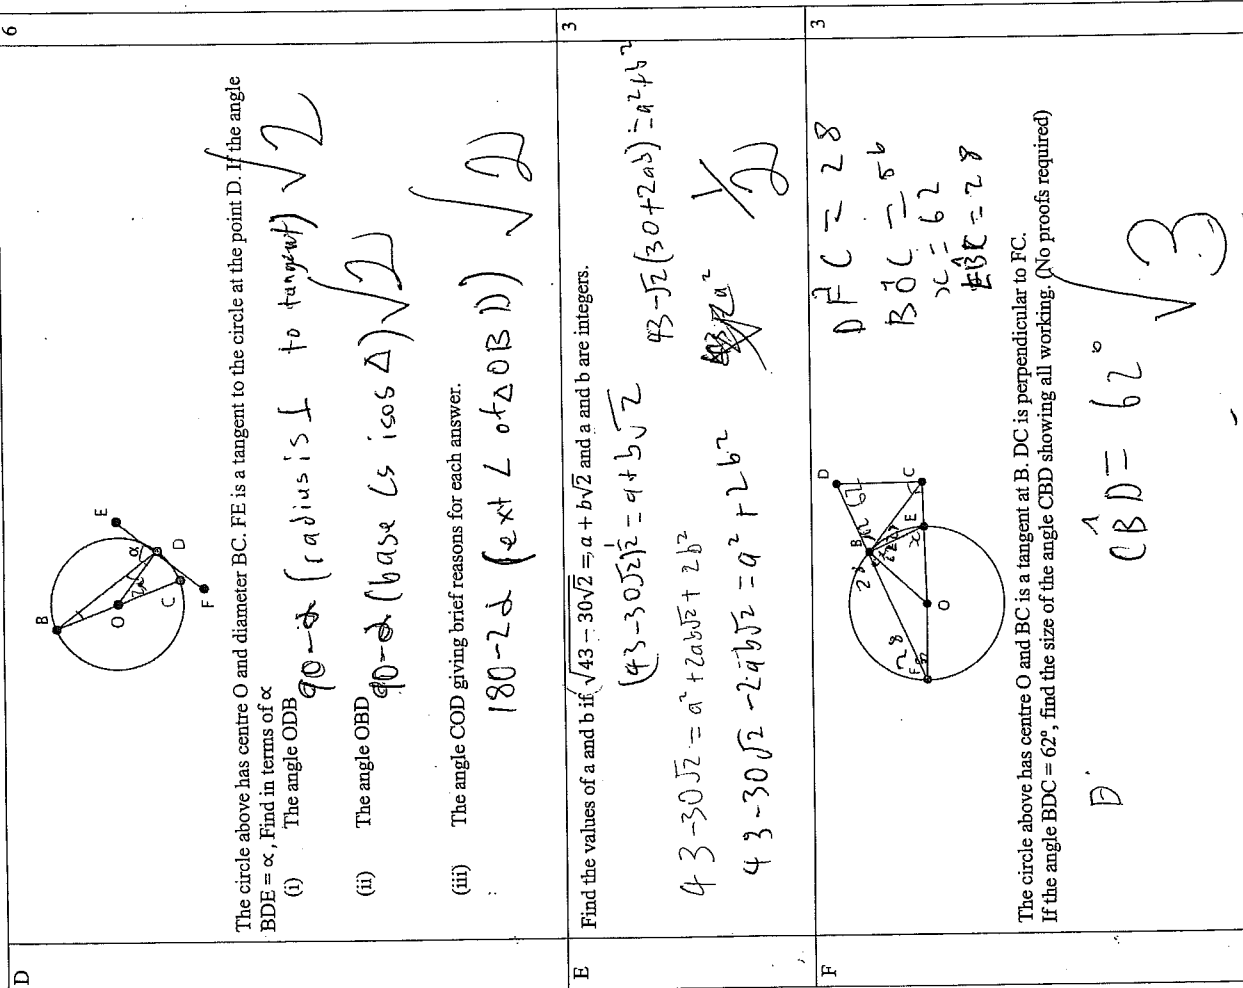 D
6
B
E
O
α
2α
D
C
F
The circle above has centre O and diameter BC. FE is a tangent to the circle at the point D. If the angle
BDE = ∝, Find in terms of ∝
(i) The angle ODB
90-α (radius is ⊥ to tangent) √2
(ii) The angle OBD
90-α (base ∠s isos Δ) √2
(iii) The angle COD giving brief reasons for each answer.
180-2α (ext ∠ of Δ OBD) √2
E
3
Find the values of a and b if √43 − 30√2 = a + b√2 and a and b are integers.
(43-30√2)½ = a+b√2
43-30√2 = a²+2ab√2+2b²
43-√2(30+2ab) = a²+b²
43-30√2-2ab√2 = a²+2b²
1/2
F
3
D
B
62
28
F
O
x
E
C
DF̂C = 28
BÔC = 56
x = 62
EB̂C = 28
The circle above has centre O and BC is a tangent at B. DC is perpendicular to FC.
If the angle BDC = 62°, find the size of the angle CBD showing all working. (No proofs required)
D
CB̂D = 62°
√3